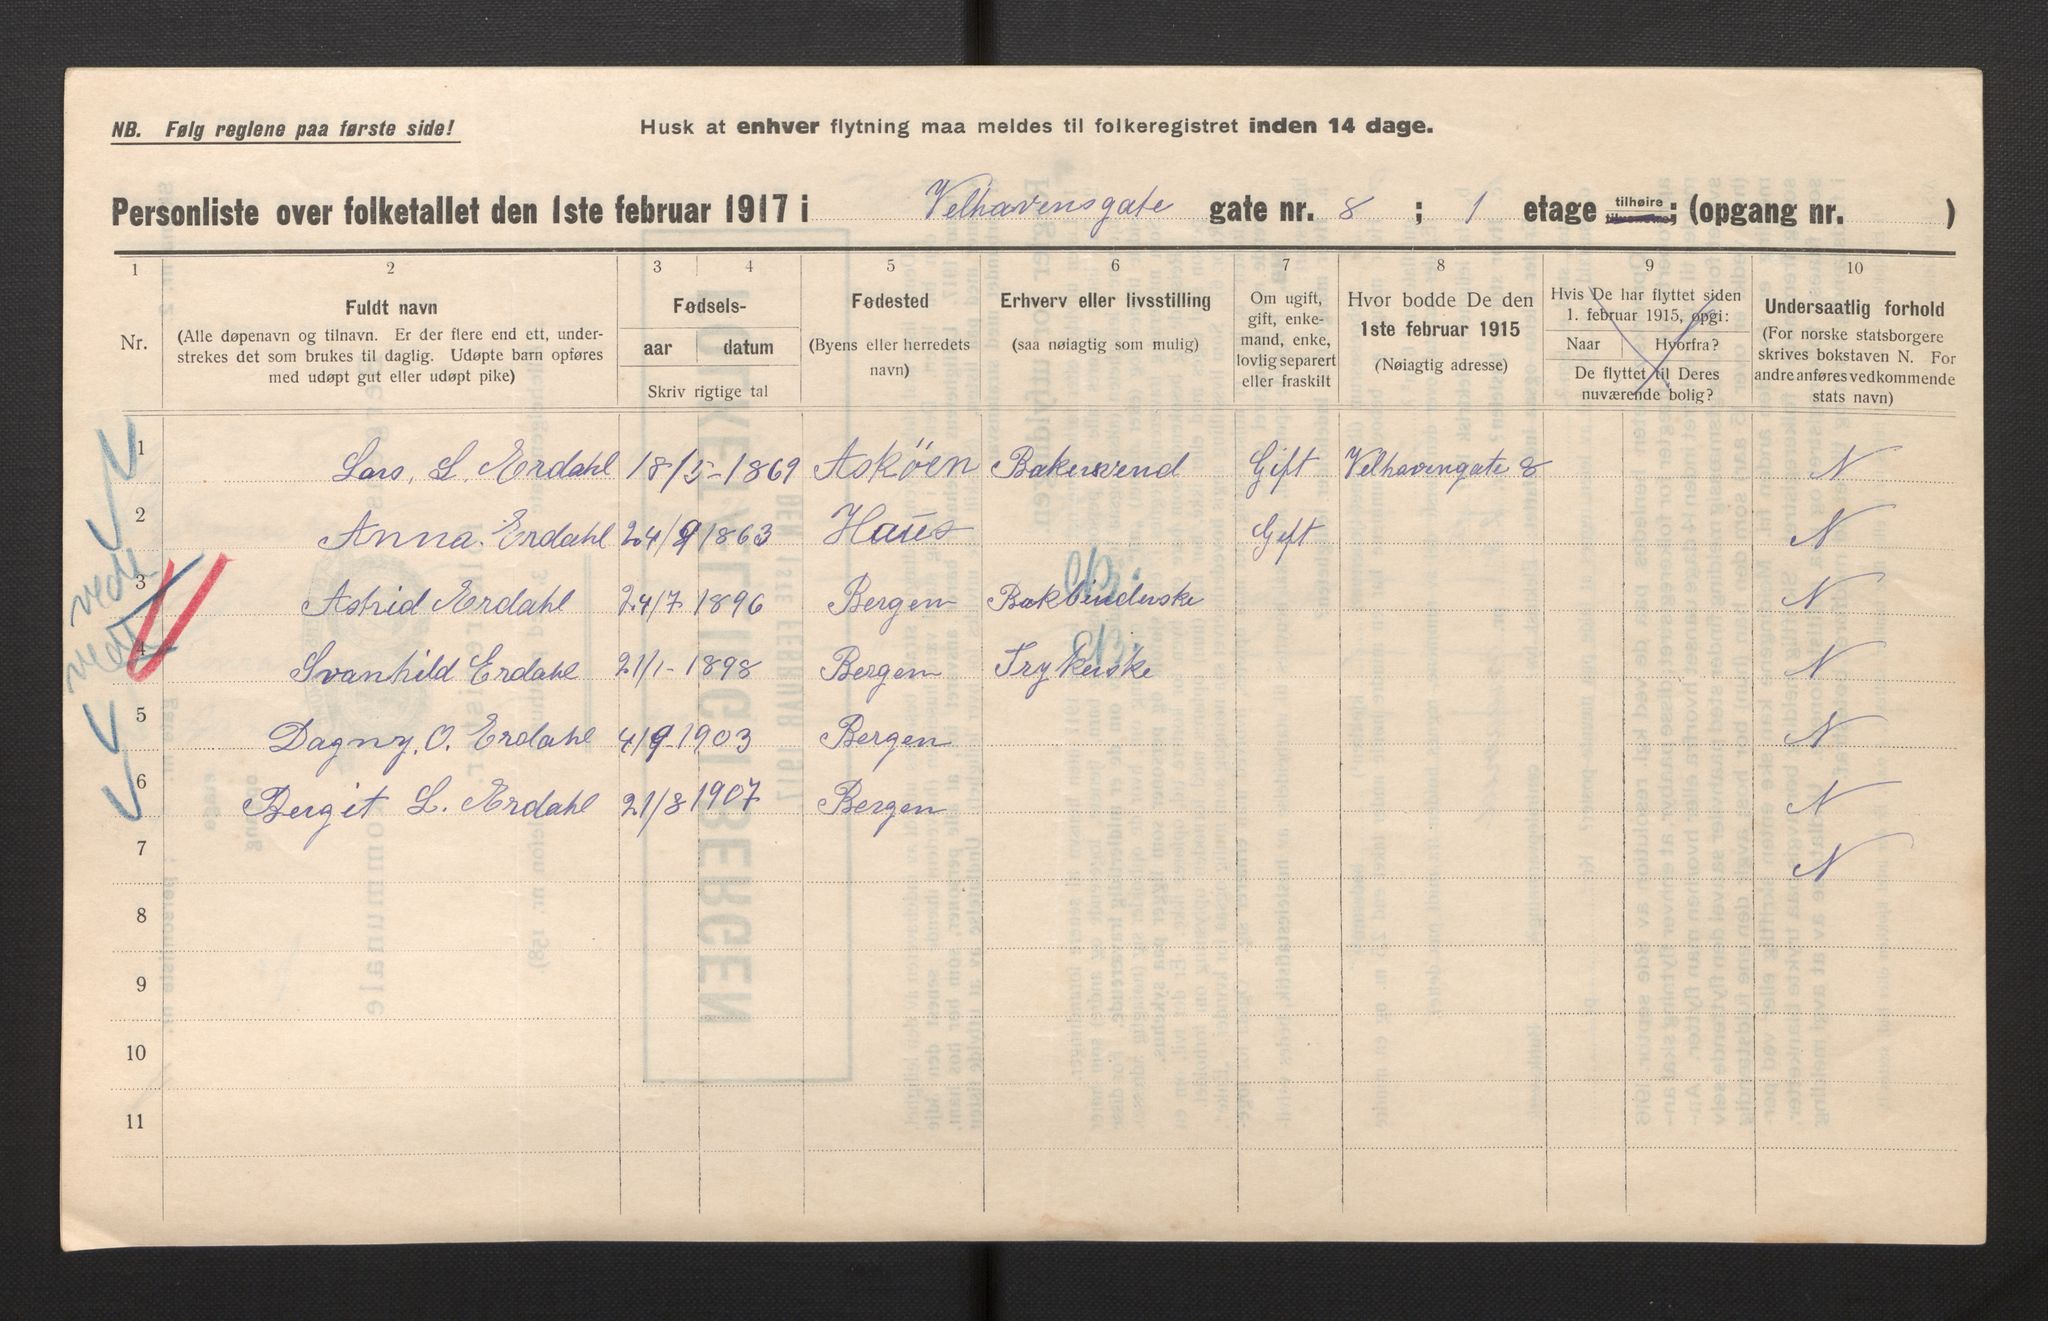 NB. Følg reglene paa første side!
Husk at enhver flytning maa meldes til folkeregistret inden 14 dage.
Personliste over folketallet den 1ste februar 1917 i Velhavensgate gate nr. 8 ; 1 etage tilhøire ; (opgang nr. )
1 2 3 4 5 6 7 8 9 10
Nr.
Fuldt navn
(Alle døpenavn og tilnavn. Er der flere end ett, under-
strekes det som brukes til daglig. Udøpte barn opføres
med udøpt gut eller udøpt pike)
Fødsels-
aar datum
Skriv rigtige tal
Fødested
(Byens eller herredets
navn)
Erhverv eller livsstilling
(saa nøiagtig som mulig)
Om ugift,
gift, enke-
mand, enke,
lovlig separert
eller fraskilt
Hvor bodde De den
1ste februar 1915
(Nøiagtig adresse)
Hvis De har flyttet siden
1. februar 1915, opgi:
Naar Hvorfra?
De flyttet til Deres
nuværende bolig?
Undersaatlig forhold
(For norske statsborgere
skrives bokstaven N. For
andre anføres vedkommende
stats navn)
1 Lars. L. Erdahl 18/5-1869 Askøen Bakersvend Gift Velhavengate 8 N
2 Anna. Erdahl 24/9 1863 Haus Gift N
3 Astrid Erdahl 24/7-1896 Bergen Bokbinderske N
4 Svanhild Erdahl 21/1-1898 Bergen Trykerske N
5 Dagny. O. Erdahl 4/9-1903 Bergen N
6 Bergit L. Erdahl 21/8 1907 Bergen N
7 N
8
9
10
11